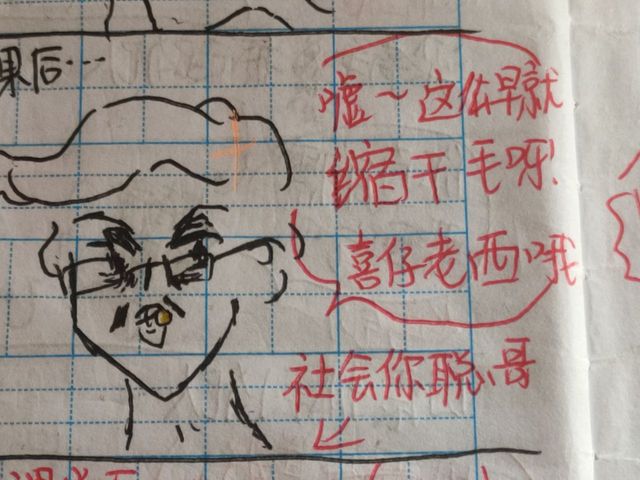 果后…
嘘~这么早就
缩干毛呀!
喜仔老西哦
社会你聪哥